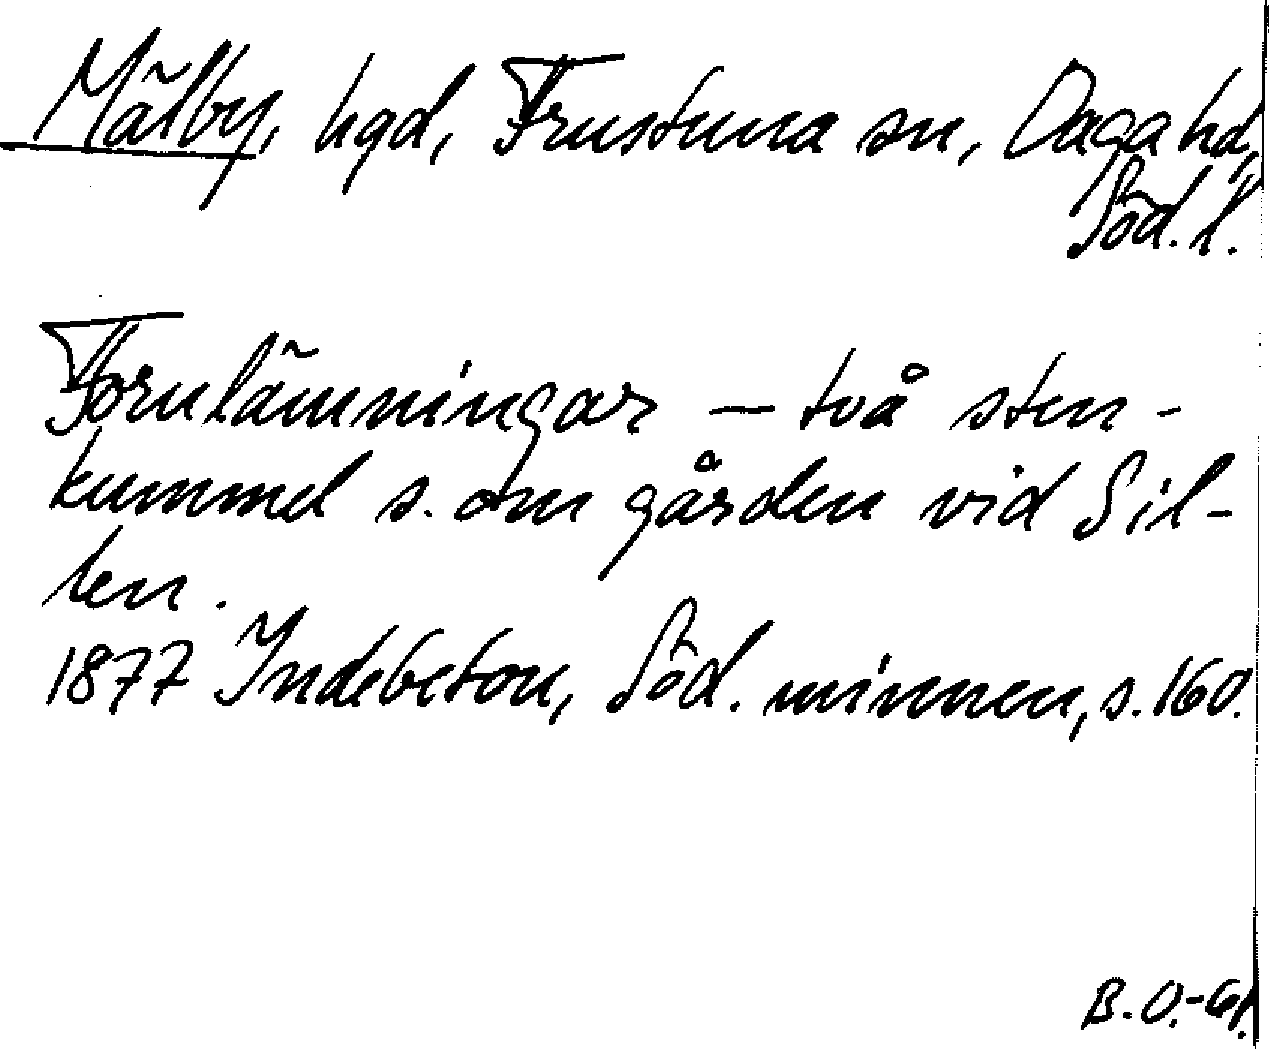 Mälby, hgd, Frustuna sn, Daga hd,
Söd. l.
Fornlämningar – två sten-
kummel s. om gården vid Sil-
len.
1877 Indebetou, Söd. minnen, s. 160.
B. O.-G.